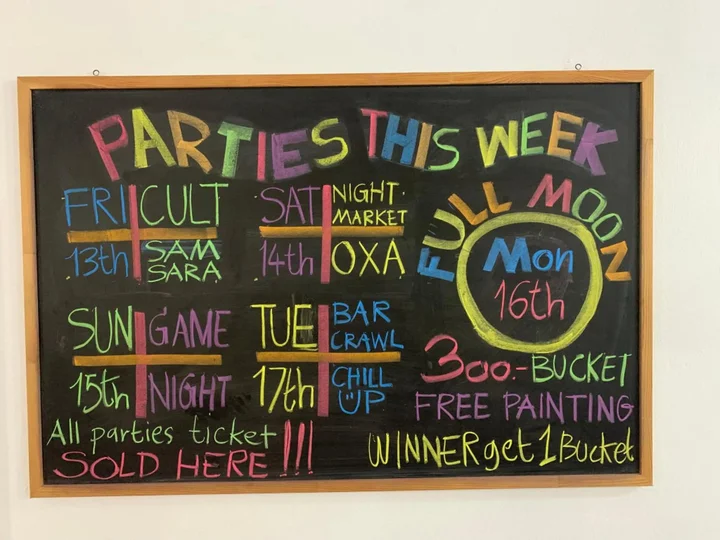 PARTIES THIS WEEK
FRI CULT
13th SAM
SARA
SAT NIGHT
MARKET
14th OXA
SUN GAME
15th NIGHT
TUE BAR
CRAWL
17th CHILL
UP
All parties ticket
SOLD HERE !!!
FULL MOON
Mon
16th
300.- BUCKET
FREE PAINTING
WINNER get 1 Bucket